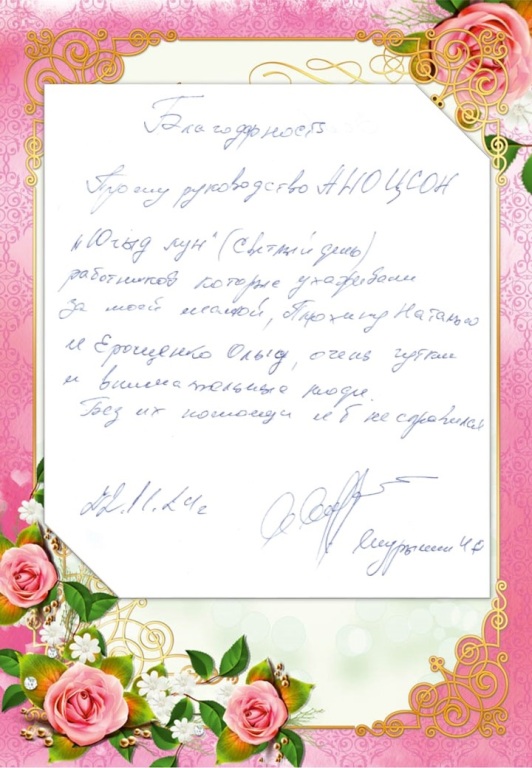 Благодарность
Прошу руководство АНО ЦСОН
"Югыд лун" (Светлый день)
работников которые ухаживали
за моей мамой, Прохину Наталью
и Ерощенко Ольгу, очень чуткие
и внимательные люди.
Без их помощи я б не справился
22.11.24г